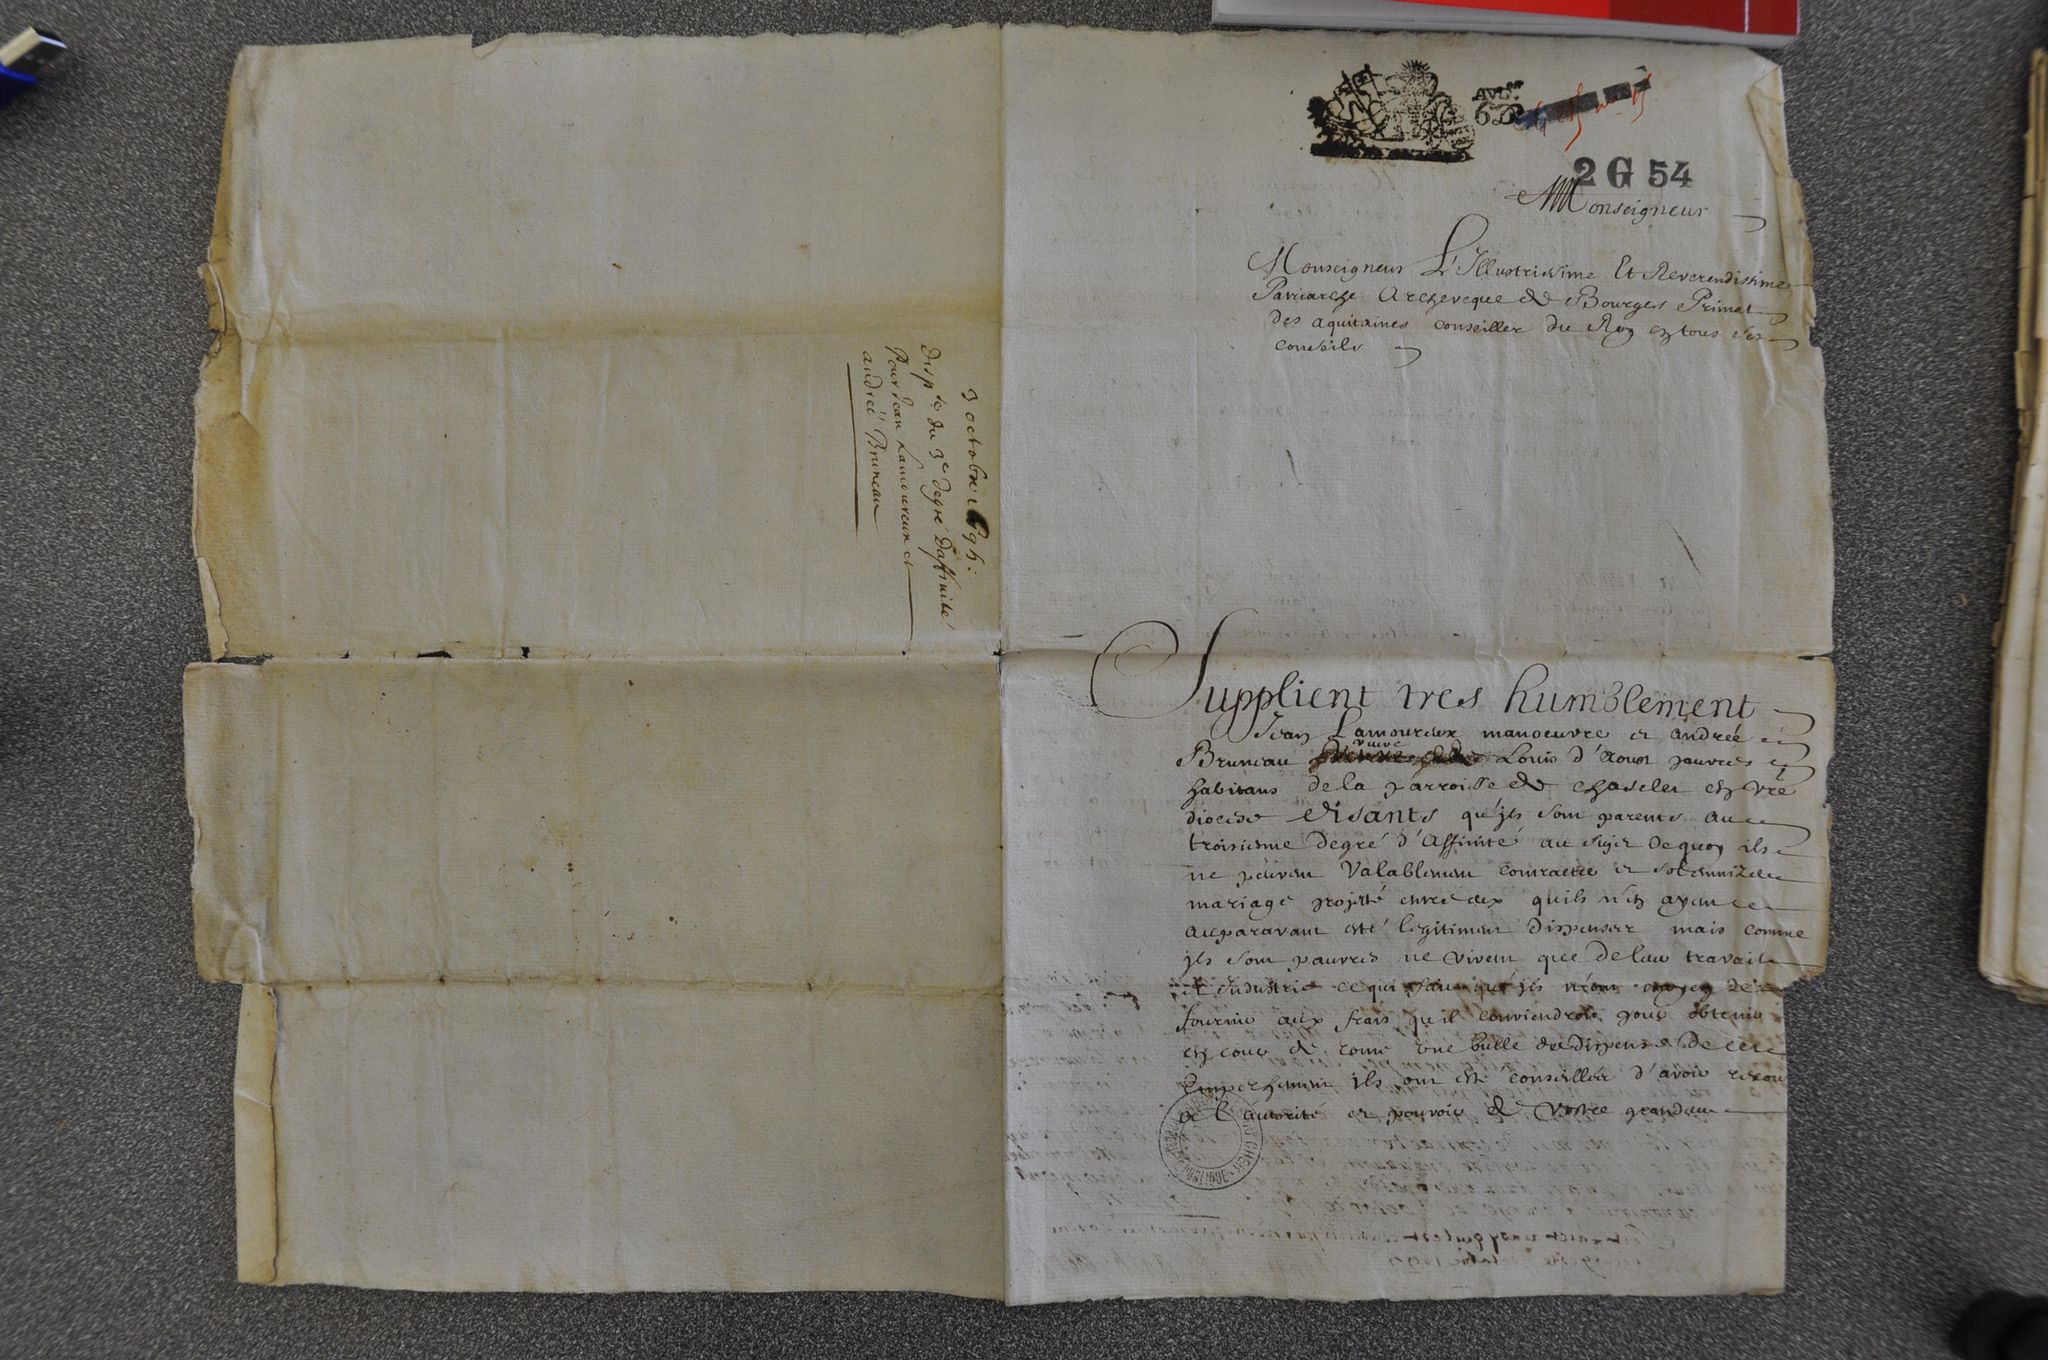 2 G 54
Monseigneur
Monseigneur L'Illustrissime Et Reverendissime
Patriarche Archeveque de Bourges Primat
des aquitaines conseiller du Roy en tous ses
conseils
Supplient tres humblement
Jean Lamoureux manoeuvre et andreé
Bruneau veuve Louis d'Aoust pauvres
habitans de la parroisse de Chaselet en vre
diocise disants qu'jls sont parents au
troisiesme degré d'affinité au sujet de quoy ils
ne peuvent valablement contracter et solemnizer
mariage projetté entre eux qu'ils n'en ayent
auparavant esté legitimemt dispensez mais comme
jls sont pauvres ne vivent que de leur travail
et Industrie ce qui fait qu'jls n'ont moyen de
fournir aux frais qu'il conviendroit pour obtenir
en cour de rome une bulle de dispense de cet
Empeschement jls ont esté conseillez d'avoir recou
a l'autorité et pouvoir de vostre grandeur
3 octobre
Dispse du 3e degré Daffinité
Pour Jean Lamoureux et
andreé Bruneau